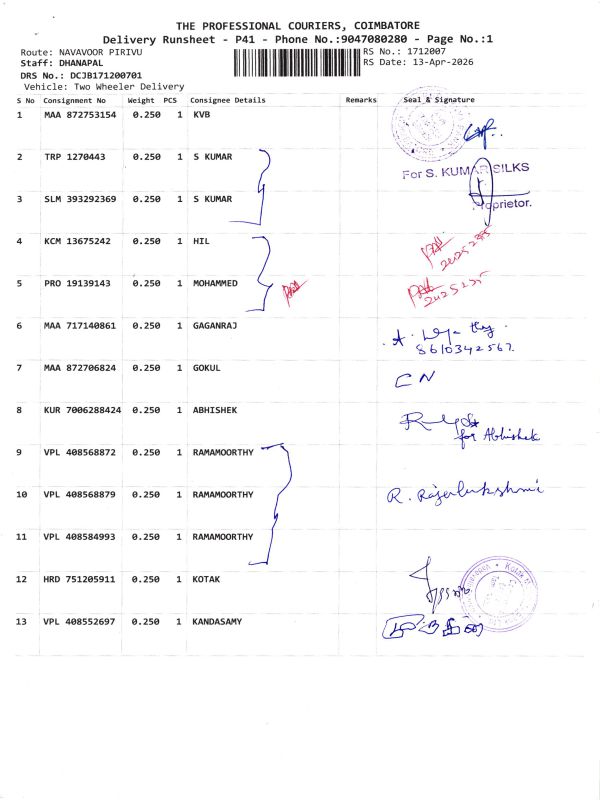 THE PROFESSIONAL COURIERS, COIMBATORE
Delivery Runsheet - P41 - Phone No.:9047080280 - Page No.:1
Route: NAVAVOOR PIRIVU RS No.: 1712007
Staff: DHANAPAL RS Date: 13-Apr-2026
DRS No.: DCJB171200701
Vehicle: Two Wheeler Delivery
S No Consignment No Weight PCS Consignee Details Remarks Seal & Signature
1 MAA 872753154 0.250 1 KVB
2 TRP 1270443 0.250 1 S KUMAR
For S. KUMAR SILKS
3 SLM 393292369 0.250 1 S KUMAR
Proprietor.
4 KCM 13675242 0.250 1 HIL
5 PRO 19139143 0.250 1 MOHAMMED
6 MAA 717140861 0.250 1 GAGANRAJ
8610342567
7 MAA 872706824 0.250 1 GOKUL
CN
8 KUR 7006288424 0.250 1 ABHISHEK
for Abhishek
9 VPL 408568872 0.250 1 RAMAMOORTHY
10 VPL 408568879 0.250 1 RAMAMOORTHY R. Rajalakshmi
11 VPL 408584993 0.250 1 RAMAMOORTHY
12 HRD 751205911 0.250 1 KOTAK
13 VPL 408552697 0.250 1 KANDASAMY